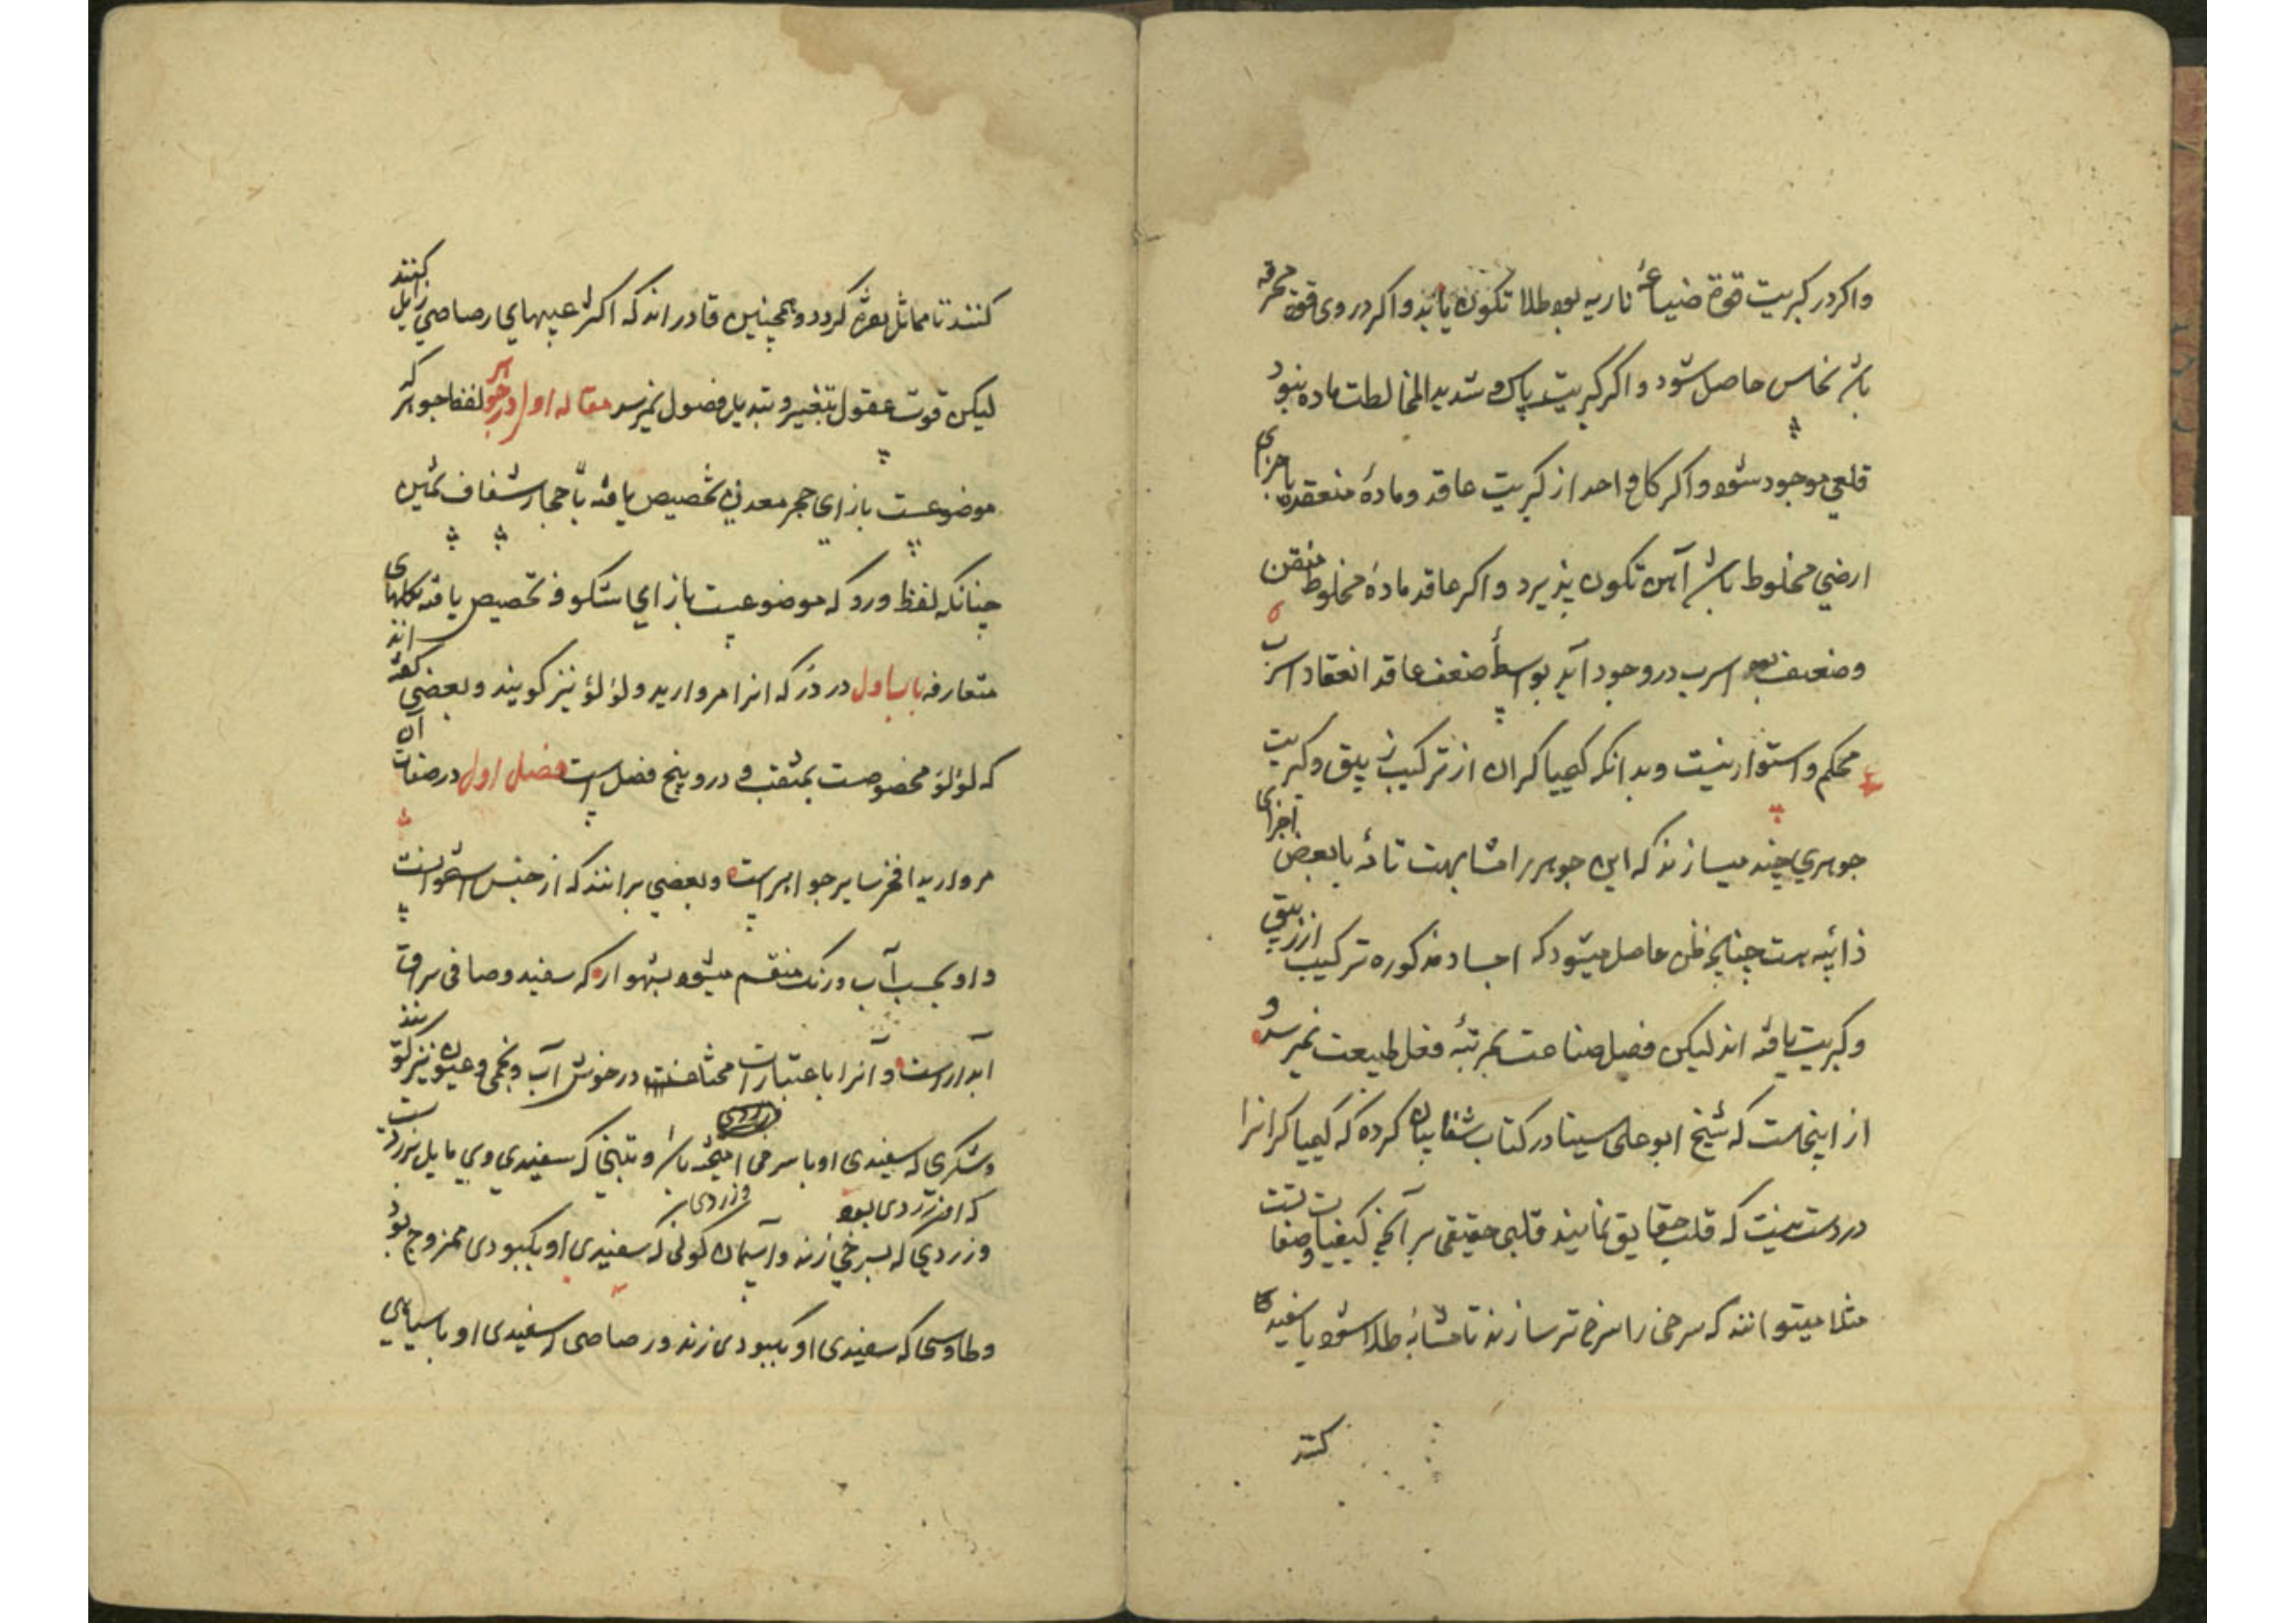 واکر در کبریت قوة صباغهٔ ناریه بود طلا تکون یابد واکر در وی قوة محرقه
باشد نحاس حاصل شود و اکر کبریت پاک و شدید المخالطت ماده نبود
قلعی موجود شود و اکر کل واحد از کبریت عاقد و مادهٔ منعقده باجزای
ارضی مخلوط باشد آهن تکون پذیرد و اکر عاقد مادهٔ مخلوط منقن
وضعیف بود اسرب در وجود آید بواسطهٔ ضعف عاقد انعقاد اسرب
محکم و استوار نیست و بدانکه کیمیاکران از ترکیب زیبق و کبریت
جوهری چند میسازند که این جوهر را مشابهت تامه با بعض اجزای
ذائبه هست چنانچه ظن حاصل میشود که اجساد مذکوره ترکیب از زیبق
و کبریت یافته اند لیکن فضل صناعت بمرتبهٔ فعل طبیعت نمیرسد و
از اینجاست که شیخ ابو علی سینا در کتاب شفا بیان کرده که کیمیاکرانرا
در دست نیست که قلب حقایق نمایند قلبی حقیقی بر آنچه کیفیات و صفات
مثلا میتوانند که سرخی را سرخ تر سازند تا مشابه طلا شود یا سفید
کنند
کنند تا مماثل نقره کردد و همچنین قادراند که اکثر عیبهای رصاصی زایل کنند
لیکن قوت عقول بتغییر و تبدیل فصول نمیرسد مقاله اول در جوهر لفظ جوهر که
موضوعست بازای حجر معدنی تخصیص یافته باحجار شفاف ثمین
چنانکه لفظ ورد که موضوعست بازای شکوفه تخصیص یافته بکلهای
متعارفه باب اول در درّ که انرا مروارید و لؤلؤ نیز کویند و بعضی کفته اند
که لؤلؤ مخصوصست بمثقب و درو پنج فصل است فصل اول در صفات آن
مروارید افخر سایر جواهر است و بعضی برانند که از جنس استخوانست
و او بحسب آب و رنک منقسم میشود بشهوار که سفید و صافی براق
ابدار است و آنرا باعتبارات در خوش آب و نجمی و عیون نیز کویند
و شکری که سفیدی او با سرخی امیخته باشد و تبنی که سفیدی وی مایل بزردیست
که اند زردی بود و زردی
و زردی که بسرخی زند و آسمان کونی که سفیدی او بکبودی ممزوج بود
و طاوسی که سفیدی او بکبودی زند و رصاصی که سفیدی او با سیاهی